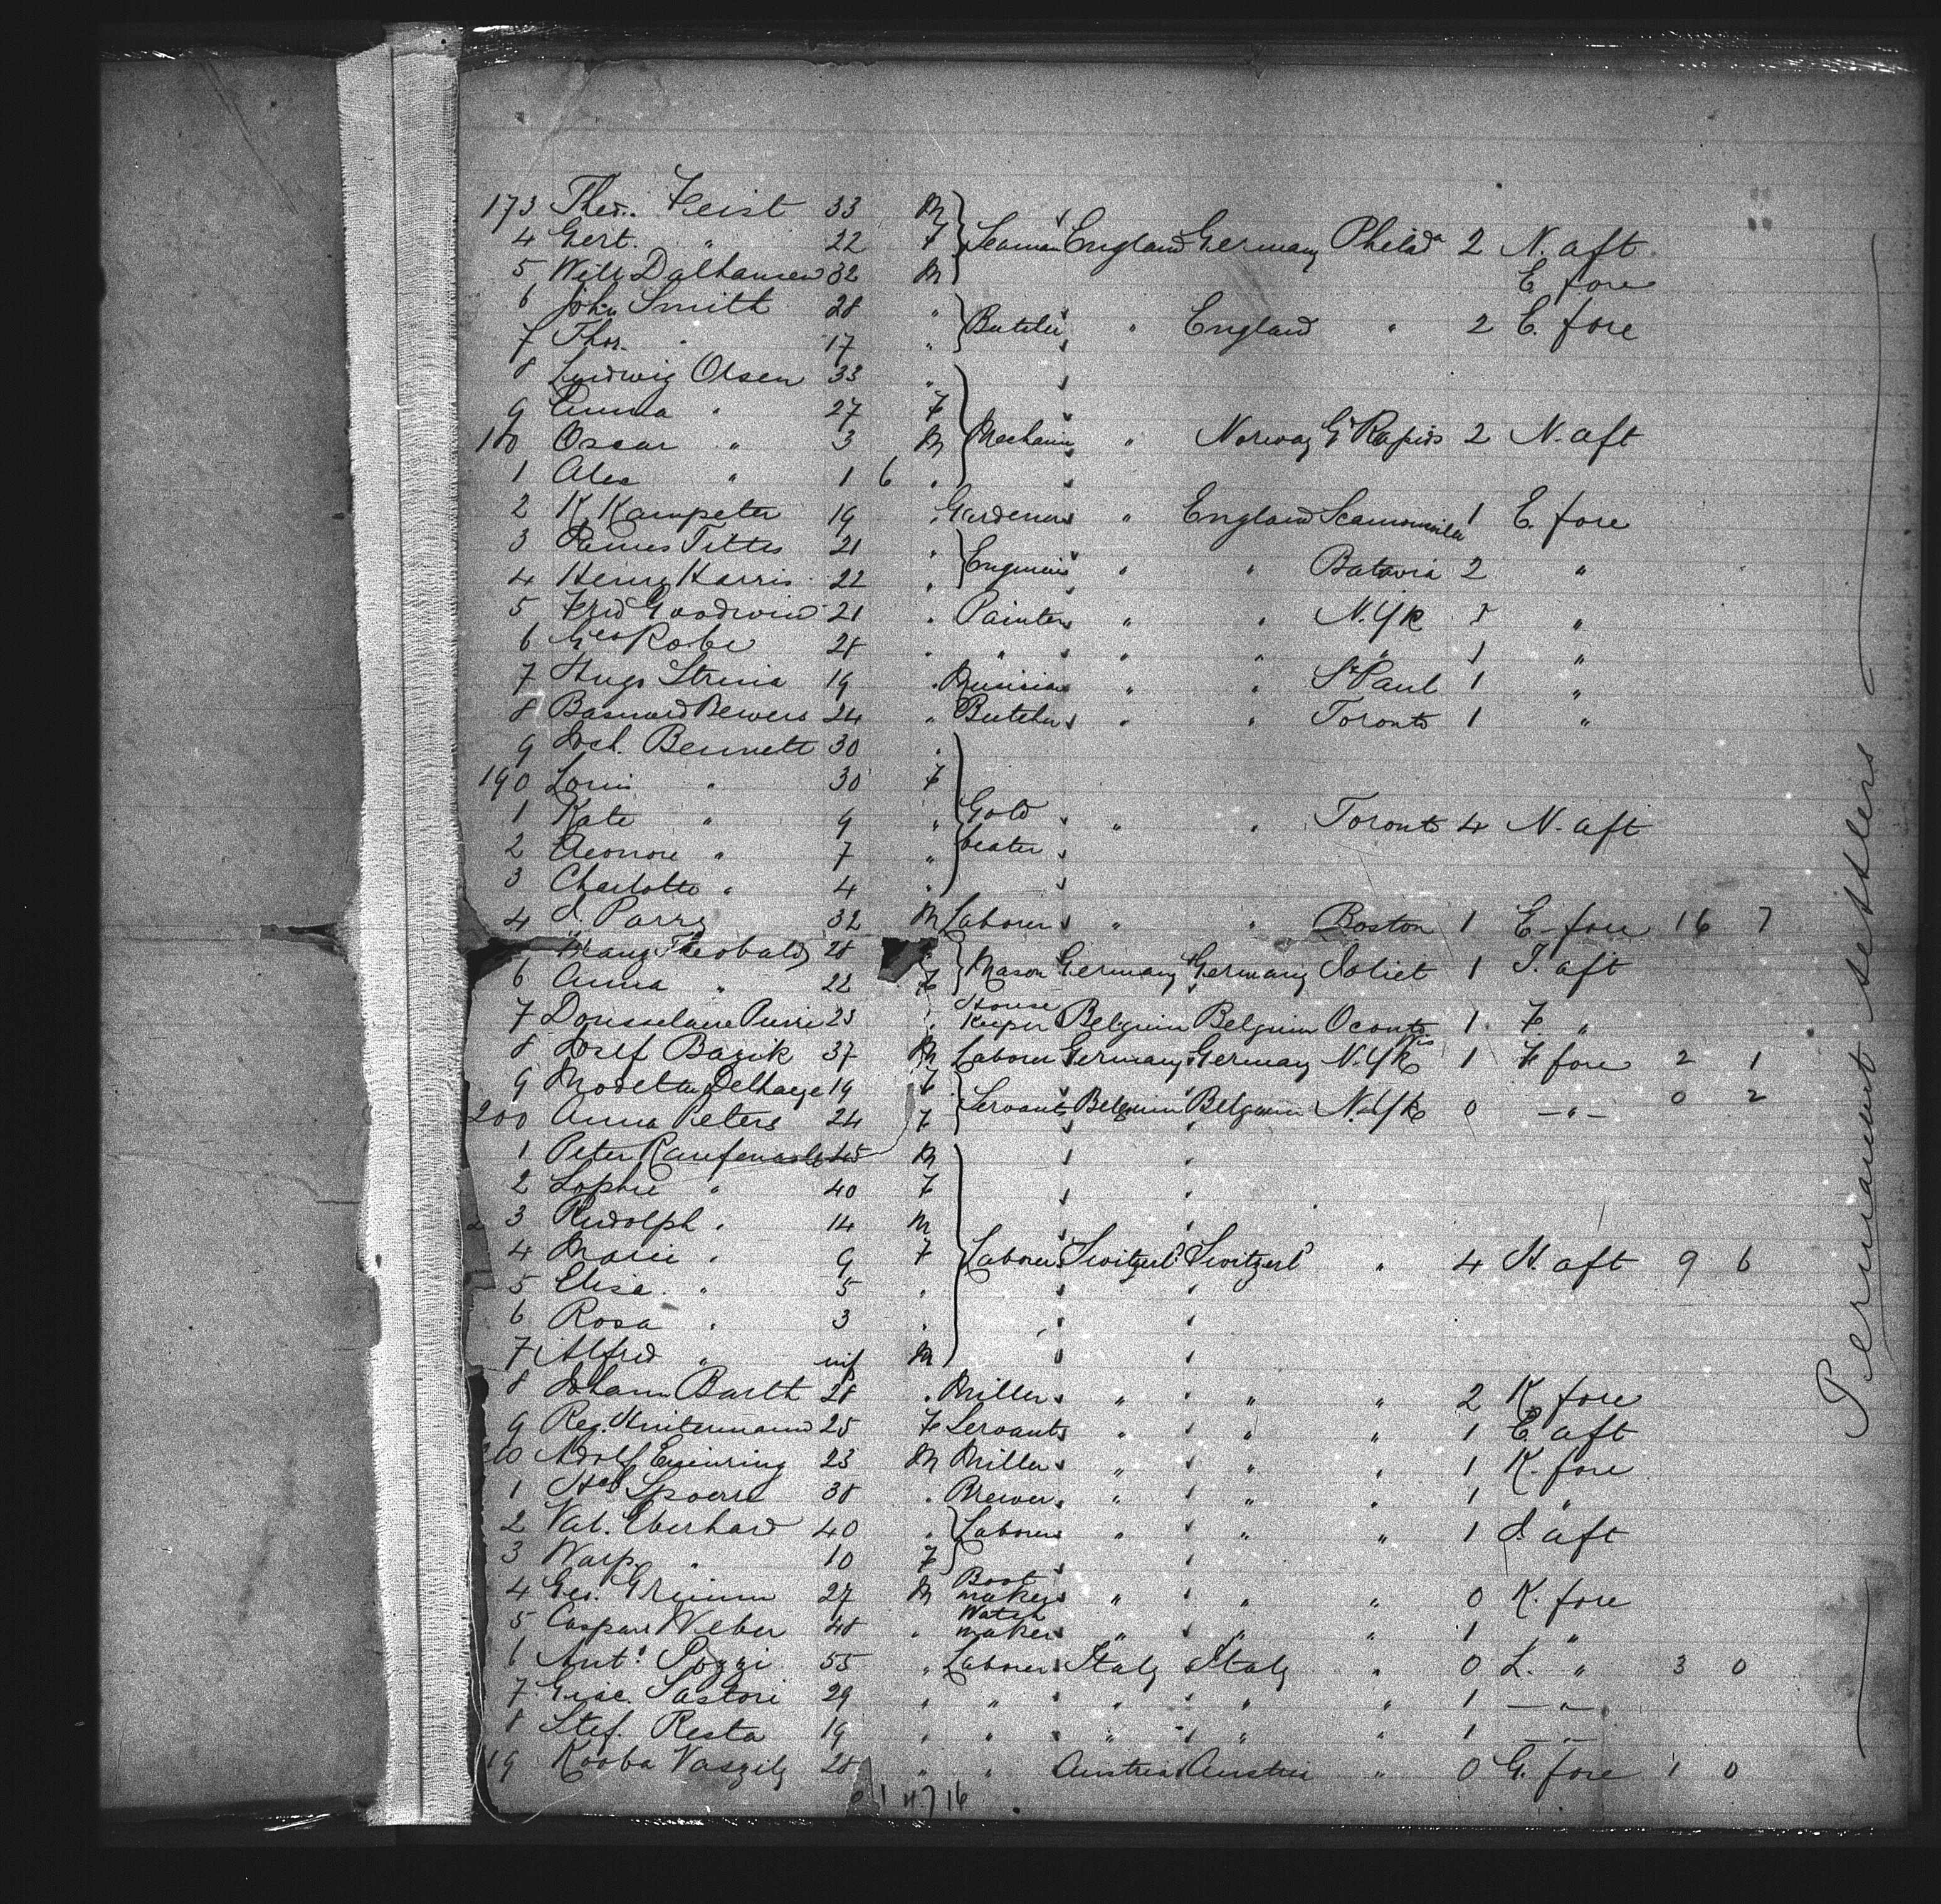 173 Theo. Feist 33 M
4 Gert. " 22 F } Seaman England Germany Philad<sup>a</sup> 2 N. aft
5 Will Dalhausen 32 M E fore
6 John Smith 28 "
7 Thos. " 17 " } Butcher " England " 2 E. fore
8 Ludwig Olsen 33 "
9 Anna " 27 F
180 Oscar " 3 M } Mechanic " Norway Gd Rapids 2 N. aft
1 Alex " 1 6 "
2 K. Kampeter 19 " Gardener " England 1 E. fore
3 Tittes 21 "
4 Henry Harris 22 " } Engineers " " Batavia 2 "
5 Fred Goodwin 21 " Painter " " N.Yk "
6 Geo Robe 28 " " " " " 1 "
7 Hugo 19 " Musician " " St Paul 1 "
8 Bewers 24 " Butcher " " Toronto 1 "
9 Jos. Bennett 30 "
190 Louis " 30 F
1 Kate " 9 " } Gold beater " " Toronto 4 N. aft
2 " 7 "
3 Charlotte " 4 "
4 Parry 32 M Laborer " " Boston 1 E fore 16 7
Franz Theobald 28 "
6 Anna " 22 F } Mason Germany Germany Joliet 1 I. aft
7 Dousselaere 23 " House Keeper Belgium Belgium Oconto Wis 1 F "
8 Josef Bazik 37 M Laborer Germany Germany N.Yk 1 F fore 2 1
9 Delhaye 19 F 0 2
200 Anna Peters 24 F } Servants Belgium Belgium N.Yk 0 — " —
1 Peter 45 M
2 Sophie " 40 F
3 Rudolph " 14 M
4 Marie " 9 F } Laborer Switzerl<sup>d</sup> Switzerl<sup>d</sup> " 4 N. aft 9 6
5 Elise " 5 "
6 Rosa " 3 "
7 Alfred " inf M
8 Johann Barth 28 " Miller " " " 2 K. fore
9 Reg. 25 F Servant " " " 1 E. aft
210 Adolf 23 M Miller " " " 1 K. fore
1 Spoerri 38 " Brewer " " " 1 "
2 Val. Eberhard 40 " } Laborer " " " 1 aft
3 " 10 F
4 Geo. Grimm 27 M Boot maker " " " 0 K. fore
5 Caspar Weber 48 " Watch maker " " " 1 "
6 Ant<sup>o</sup> Pozzi 55 " Laborer Italy Italy " 0 L. " 3 0
7 Sastori 29 " " " " " 1 — " —
8 Stef. Resta 19 " " " " " 1 — " —
19 Kooba Vaszily 28 " " Austria Austria " 0 G. fore 1 0
Permanent settlers